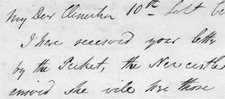 My Dear Clementson 10th Sept
I have received your letter
by the Picket, the Newcastle
arrived she will lose those